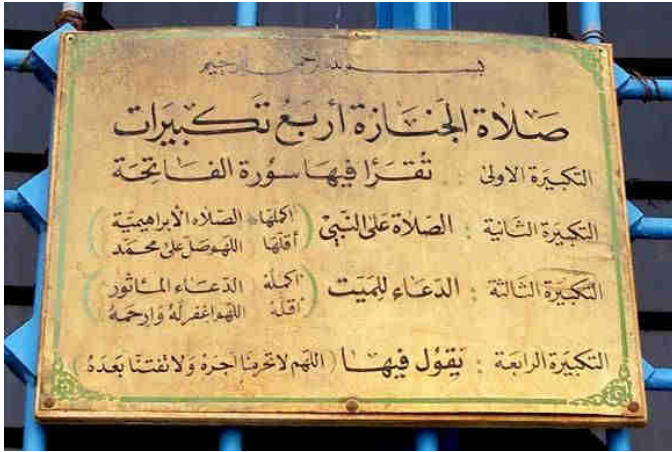 بسم الله الرحمن الرحيم
صَلاة الجَنَازة أربَعُ تَكبيرَات
التكبيَرة الاولىٰ : تُقرَأ فيهَا سُورة الفَاتِحَة
التكبيَرة الثَانية : الصَلاة عَلى النَّبيّ ( اكملهَا الصَلاه الأبراهيميَة
أقلهَا اللهم صَل على محمَد )
التكبيَرة الثالثة : الدعَاء للمَيت ( اكملهُ الدعَاء المَاثور
أقلهُ اللهم اغفر لَهُ وَارحمهُ )
التكبيَرة الرابعَة : يَقُول فيهَا ( اللهم لا تحرمنا أجرَهُ وَلا تفتنَا بَعدَهُ )